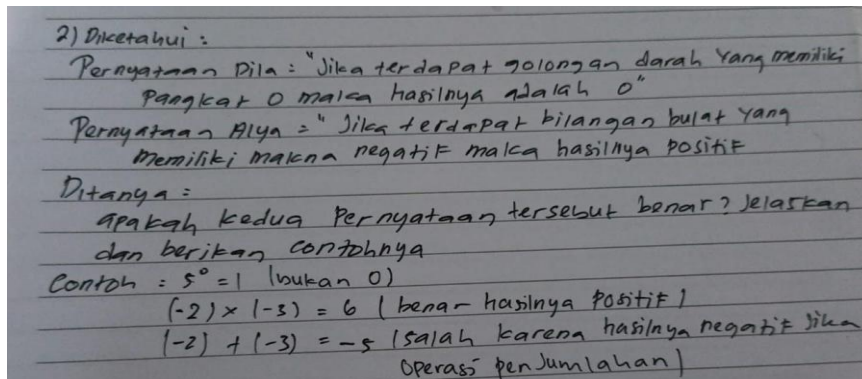 2) Diketahui :
Pernyataan Dila = "Jika terdapat golongan darah yang memiliki
pangkat 0 maka hasilnya adalah 0"
Pernyataan Alya = "Jika terdapat bilangan bulat yang
memiliki makna negatif maka hasilnya positif
Ditanya =
apakah kedua pernyataan tersebut benar? Jelaskan
dan berikan contohnya
Contoh : 5⁰ = 1 (bukan 0)
(-2) × (-3) = 6 (benar hasilnya positif)
(-2) + (-3) = -5 (salah karena hasilnya negatif Jika
operasi penjumlahan)